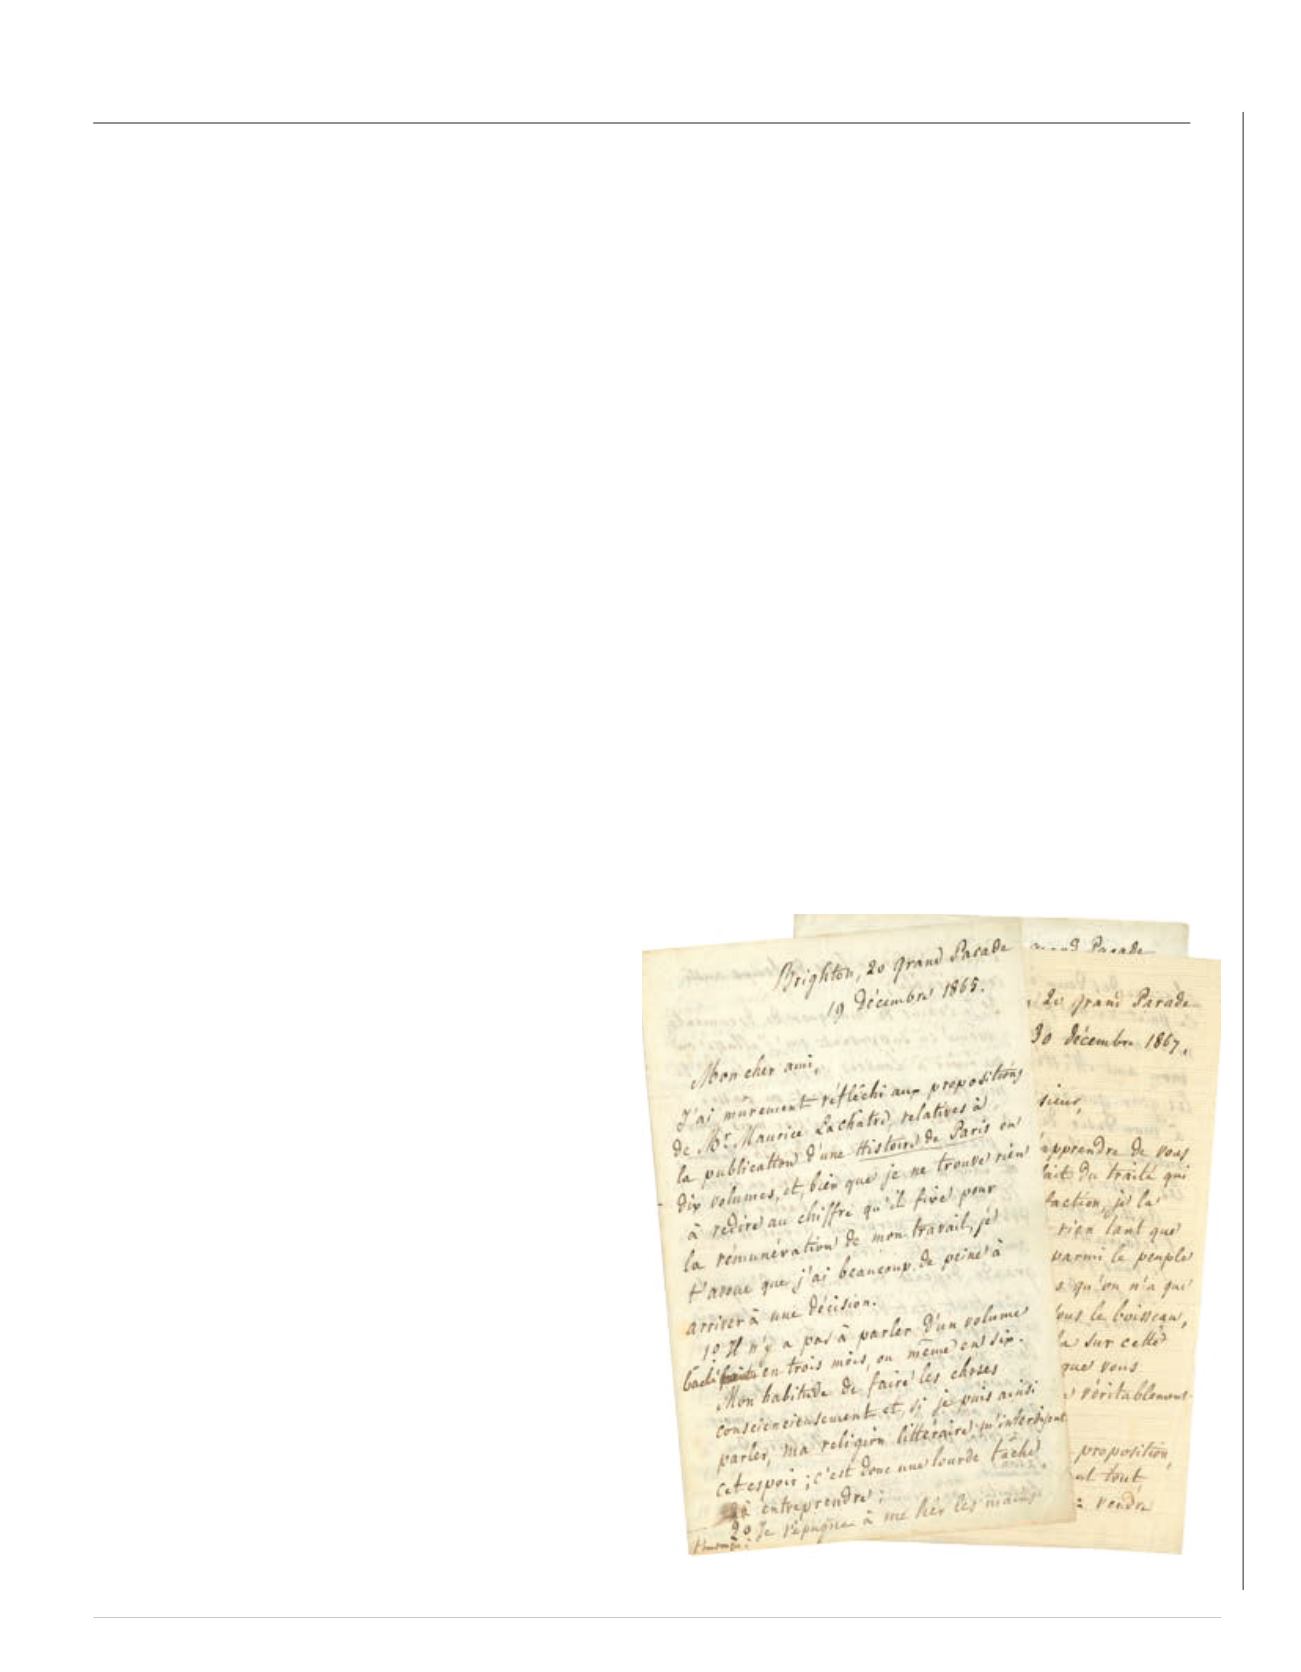 Brighton, 20 Grand Parade
19 Décembre 1865.
Mon cher ami,
J'ai mûrement réfléchi aux propositions
de Mr. Maurice Lachâtre, relatives à
la publication d'une Histoire de Paris en
dix volumes, et, bien que je ne trouve rien
à redire au chiffre qu'il fixe pour
la rémunération de mon travail, je
t'avoue que j'ai beaucoup de peine à
arriver à une décision.
1o Il n'y a pas à parler d'un volume
en trois mois, ou même en six.
Mon habitude de faire les choses
consciencieusement et, si je puis ainsi
parler, ma religion littéraire m'interdisent
cet espoir ; c'est donc une lourde tâche
à entreprendre ;
2o Je répugne à me lier les mains
Grand Parade
20 Grand Parade
30 décembre 1867.
sieur,
apprendre de vous
fait du traité qui
faction, je la
rien tant que
parmi le peuple
s qu'on n'a que
sous le boisseau,
la sur cette
que vous
véritablement
proposition,
tout
vendre